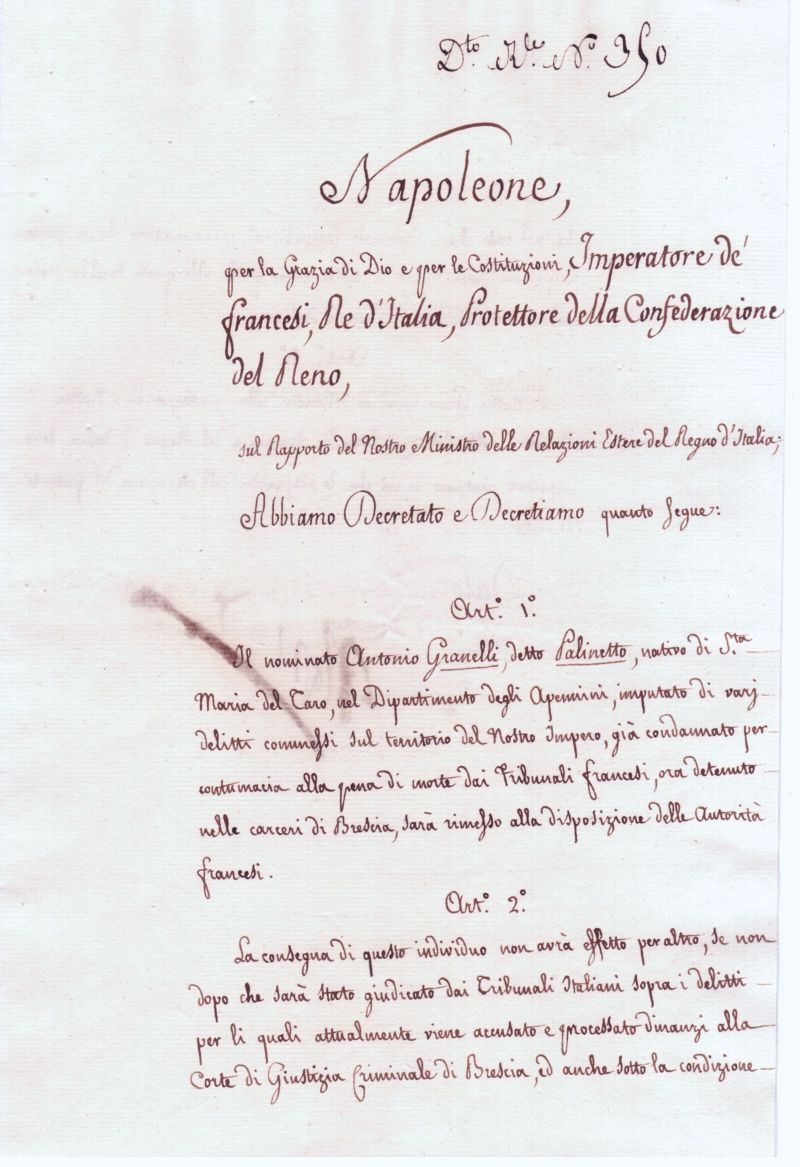 Dto. Rle. No. 350
Napoleone,
per la Grazia di Dio e per le Costituzioni, Imperatore de'
francesi, Re d'Italia, Protettore della Confederazione
del Reno,
sul Rapporto del Nostro Ministro delle Relazioni Estere del Regno d'Italia;
Abbiamo Decretato e Decretiamo quanto segue:
Art.° 1.°
Il nominato Antonio Granelli, detto Palinetto, nativo di S.ta
Maria del Taro, nel Dipartimento degli Apennini, imputato di varj
delitti commessi sul territorio del Nostro Impero, già condannato per
contumacia alla pena di morte dai Tribunali francesi, ora detenuto
nelle carceri di Brescia, sarà rimesso alla disposizione delle Autorità
francesi.
Art.° 2.°
La consegna di questo individuo non avrà effetto per altro, se non
dopo che sarà stato giudicato dai Tribunali Italiani sopra i delitti
per li quali attualmente viene accusato e processato dinanzi alla
Corte di Giustizia Criminale di Brescia, ed anche sotto la condizione